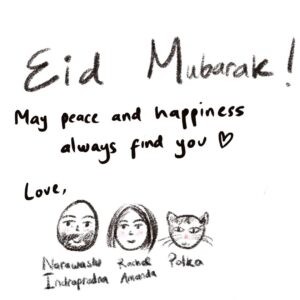 Eid Mubarak!
May peace and happiness
always find you ♡
Love,
Rachel Polka
Amanda